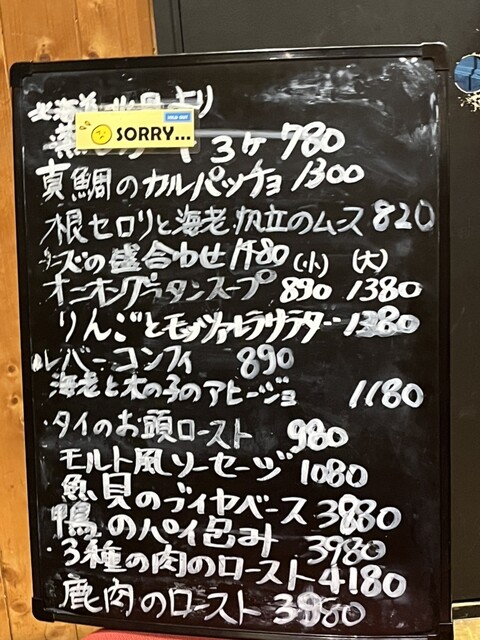 北海道 より
SOLD OUT
SORRY...
3ヶ 780
真鯛のカルパッチョ 1300
根セロリと海老、帆立のムース 820
チーズの盛合わせ 1480 (小) (大)
オニオングラタンスープ 890 1380
りんごとモッツァレラサラダー 1380
レバーコンフィ 890
海老と木の子のアヒージョ 1180
・タイのお頭ロースト 980
モルト風ソーセージ 1080
魚貝のブイヤベース 3880
鴨のパイ包み 3980
・3種の肉のロースト 4180
鹿肉のロースト 3980